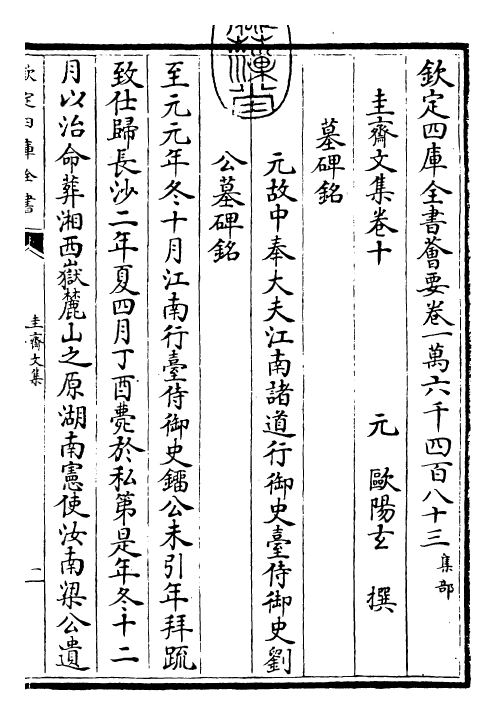 欽定四庫全書薈要卷一萬六千四百八十三集部
圭齋文集卷十　元　歐陽玄　撰
墓碑銘
元故中奉大夫江南諸道行御史臺侍御史劉
公墓碑銘
至元元年冬十月江南行臺侍御史鐂公未引年拜疏
致仕歸長沙二年夏四月丁酉薨於私第是年冬十二
月以治命葬湘西嶽麓山之原湖南憲使汝南梁公遺
欽定四庫全書
圭齋文集
一